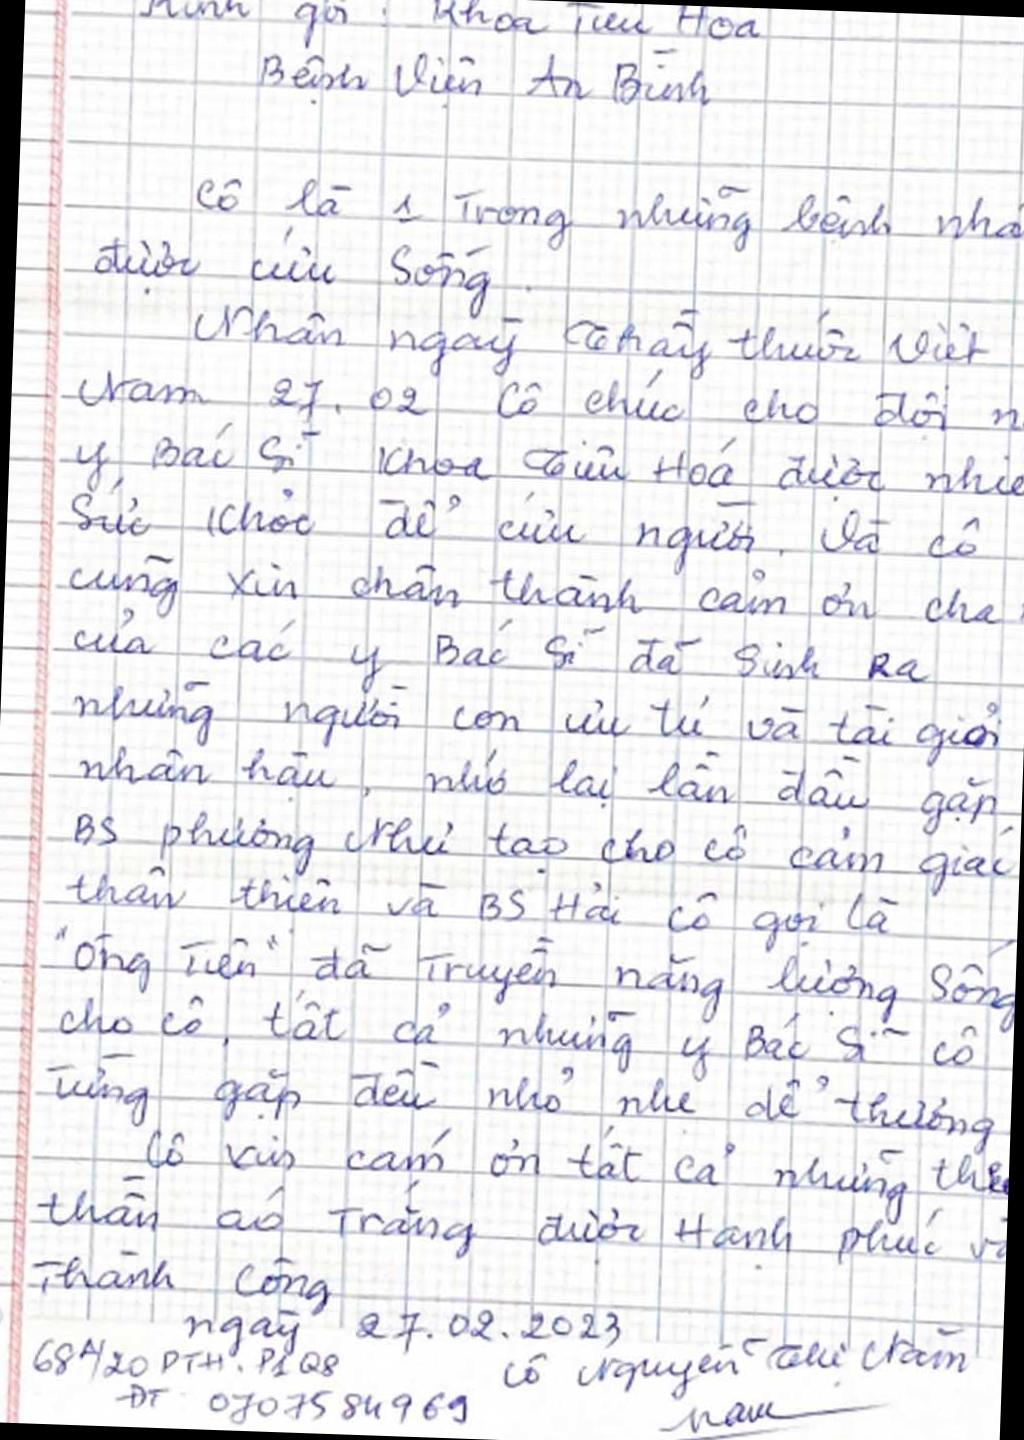 Kính gởi: Khoa Tiêu Hóa
Bệnh Viện An Bình
Cô là 1 Trong những bệnh nhâ
được cứu Sống.
Nhân ngaỳ Thầy thuốc Việt
Nam 27.02 Cô chúc cho đội n
y Bác Sĩ Khoa Tiêu Hoá được nhiề
Sức Khỏe để cứu người. Và cô
cũng xin chân thành cảm ơn cha
của các y Bác Sĩ đã Sinh Ra
những người con ưu tú và tài giỏi
nhân hậu, nhớ lại lần đầu gặp
BS phương Như tạo cho cô cảm giác
thân thiện và BS Hải Cô gọi là
"Ông Tiên" đã Truyền năng lượng Sống
cho cô, tất cả những y Bác Sĩ cô
từng gặp đều nhỏ nhẹ dể thương
Cô xin cám ơn tất cả những thiê
thần aó Trắng được Hạnh phúc và
Thành Công
ngaỳ 27.02.2023
68A/20 PTH. P1 Q8
Cô Nguyễn Thị Năm
ĐT 0707584969
Nam